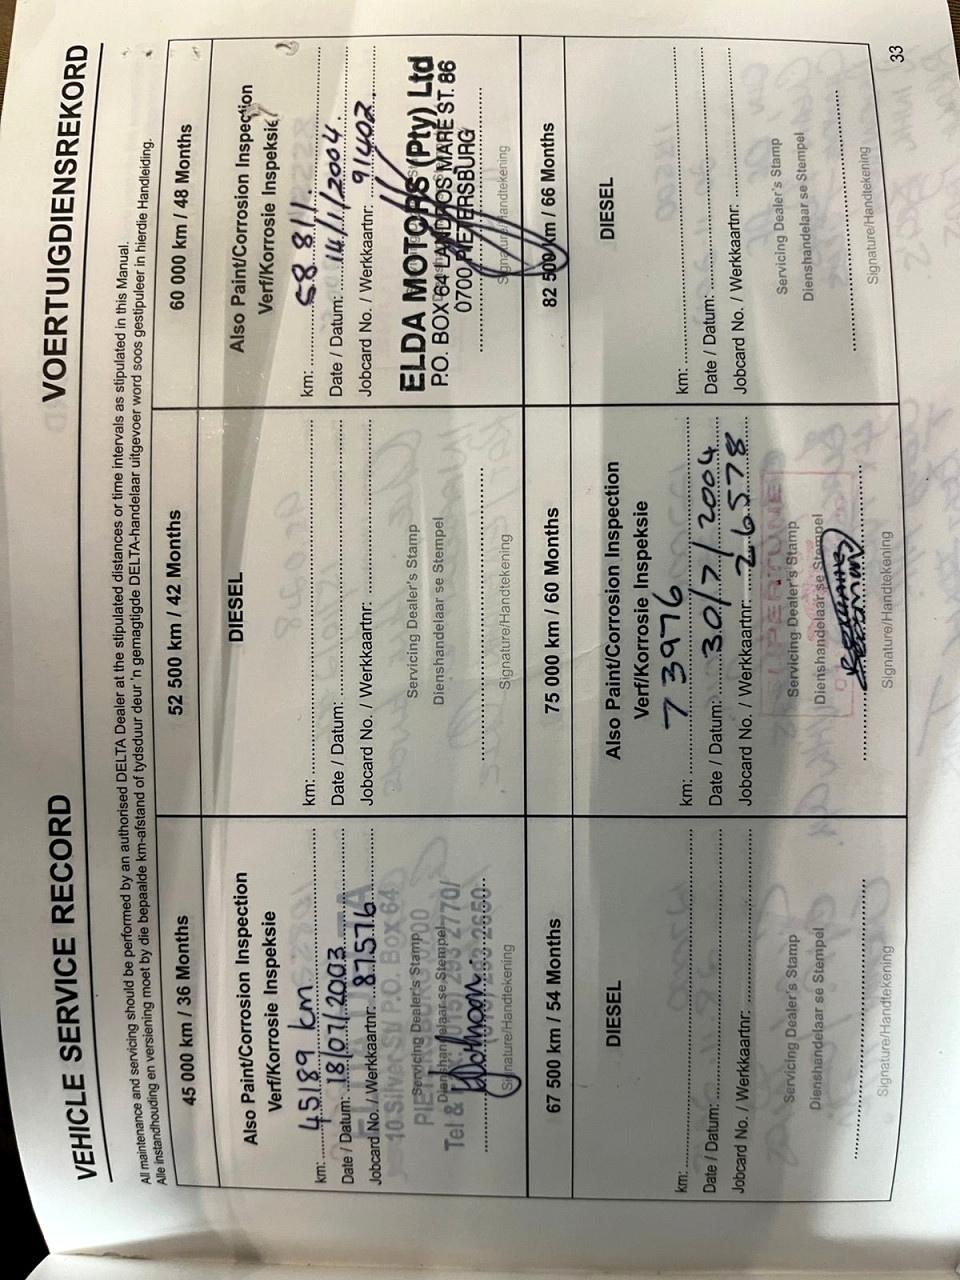 VEHICLE SERVICE RECORD
VOERTUIGDIENSREKORD
All maintenance and servicing should be performed by an authorised DELTA Dealer at the stipulated distances or time intervals as stipulated in this Manual.
Alle instandhouding en versiening moet by die bepaalde km-afstand of tydsduur deur 'n gemagtigde DELTA-handelaar uitgevoer word soos gestipuleer in hierdie Handleiding.
45 000 km / 36 Months
Also Paint/Corrosion Inspection
Verf/Korrosie Inspeksie
km: 45189 km
Date / Datum: 18/07/2003
Jobcard No. / Werkkaartnr: 87576
10 Silver St/ P.O. Box 64
Servicing Dealer's Stamp
PIETERSBURG 0700
Dienshandelaar se Stempel
Tel & (015) 293 2770/
Signature/Handtekening
52 500 km / 42 Months
DIESEL
km:
Date / Datum:
Jobcard No. / Werkkaartnr:
Servicing Dealer's Stamp
Dienshandelaar se Stempel
Signature/Handtekening
60 000 km / 48 Months
Also Paint/Corrosion Inspection
Verf/Korrosie Inspeksie
km: 58 811
Date / Datum: 14/1/2004
Jobcard No. / Werkkaartnr: 91402
ELDA MOTORS (Pty) Ltd
P.O. BOX 64 LANDROS MARE ST. 86
0700 PIETERSBURG
Signature/Handtekening
67 500 km / 54 Months
DIESEL
km:
Date / Datum:
Jobcard No. / Werkkaartnr:
Servicing Dealer's Stamp
Dienshandelaar se Stempel
Signature/Handtekening
75 000 km / 60 Months
Also Paint/Corrosion Inspection
Verf/Korrosie Inspeksie
km: 73976
Date / Datum: 30/7/2004
Jobcard No. / Werkkaartnr: 26578
Servicing Dealer's Stamp
Dienshandelaar se Stempel
Signature/Handtekening
82 500 km / 66 Months
DIESEL
km:
Date / Datum:
Jobcard No. / Werkkaartnr:
Servicing Dealer's Stamp
Dienshandelaar se Stempel
Signature/Handtekening
33